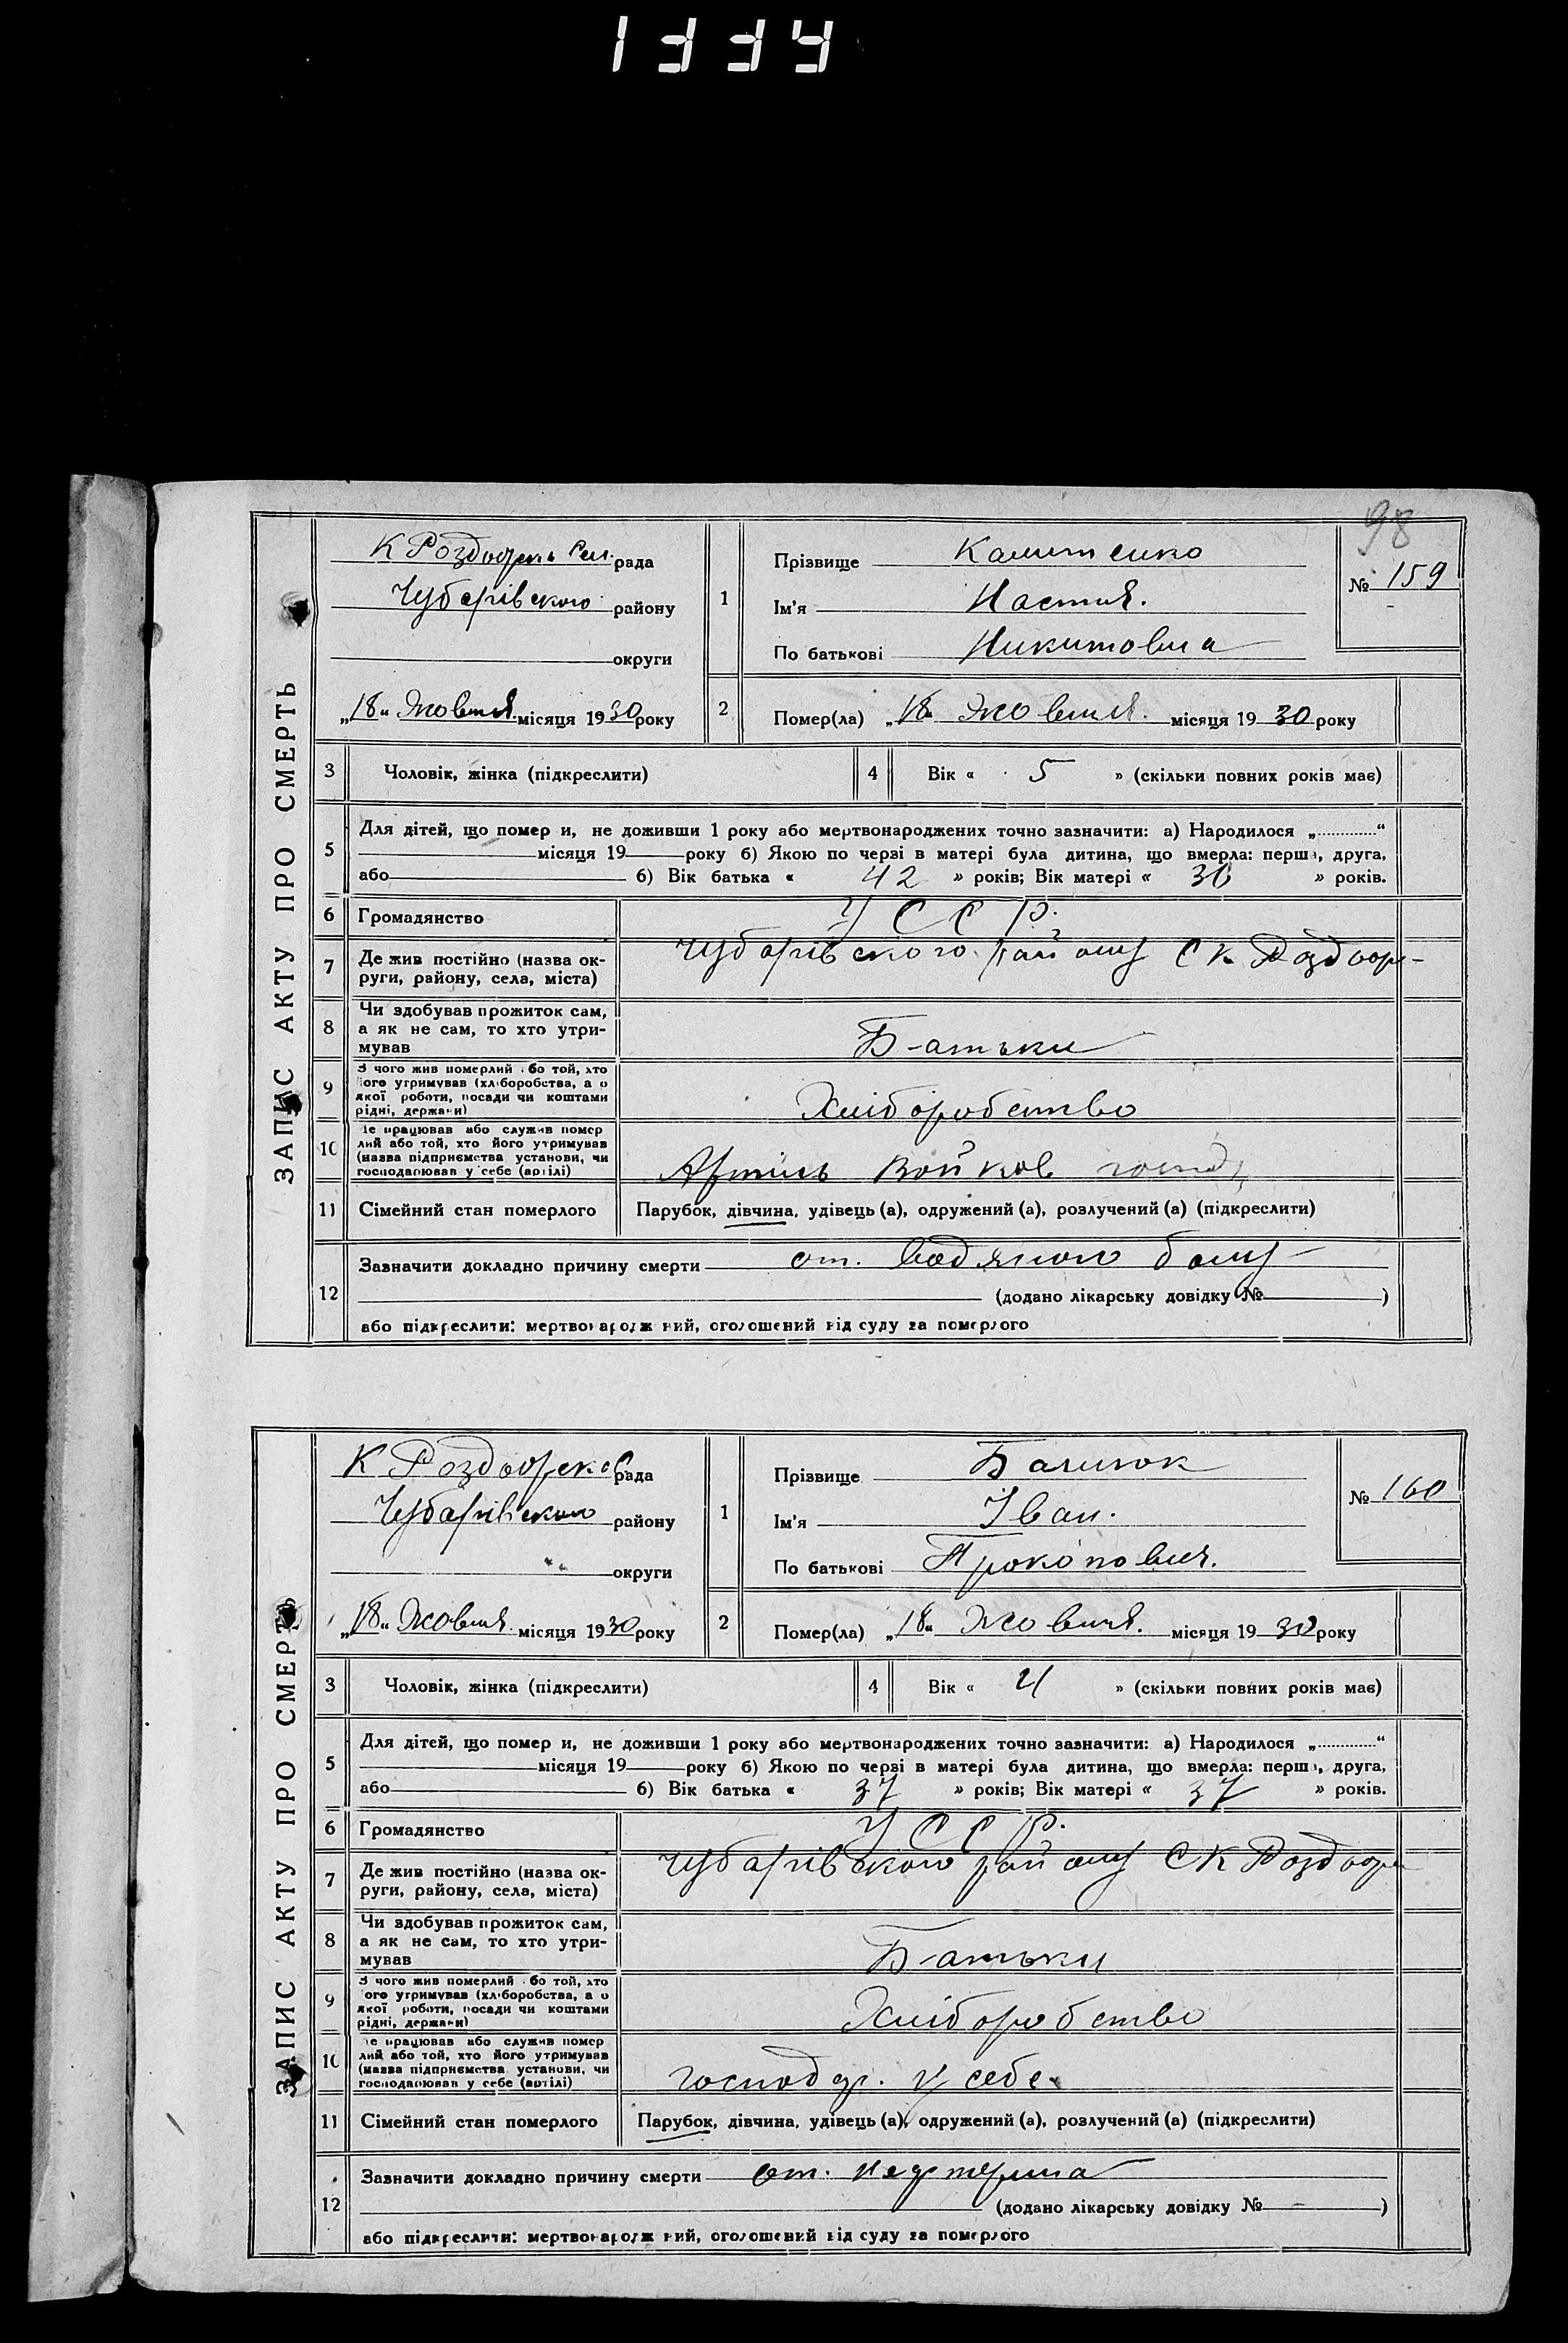 1334
98
ЗАПИС АКТУ ПРО СМЕРТЬ
К Роздорськ Сел. рада
Чубарівського району
округи
„18“ Жовтня місяця 1930 року
1
Прізвище Калитенко
Ім'я Настя.
По батькові Никитовна
№ 159
2
Помер(ла) „18“ Жовтня. місяця 1930 року
3 Чоловік, жінка (підкреслити)
4 Вік « 5 » (скільки повних років має)
5 Для дітей, що помер и, не доживши 1 року або мертвонароджених точно зазначити: а) Народилося „ “
місяця 19 року б) Якою по черзі в матері була дитина, що вмерла: перша, друга,
або б) Вік батька « 42 » років; Вік матері « 36 » років.
6 Громадянство УССР.
7 Де жив постійно (назва ок-
руги, району, села, міста)
Чубарівського району С К Роздори
8 Чи здобував прожиток сам,
а як не сам, то хто утри-
мував
Батьки
9 З чого жив померлий або той, хто
його утримував (хліборобства, а о
якої роботи, посади чи коштами
рідні, держави)
Хліборобство
10 Де працював або служив помер
лий або той, хто його утримував
(назва підприємства установи, чи
господарював у себе (артілі)
Артіль Войков
11 Сімейний стан померлого Парубок, дівчина, удівець (а), одружений (а), розлучений (а) (підкреслити)
12 Зазначити докладно причину смерти от. водяного
(додано лікарську довідку № )
або підкреслити: мертвонароджений, оголошений від суду за померлого
ЗАПИС АКТУ ПРО СМЕРТЬ
К Роздорськ рада
Чубарівського району
округи
„18“ Жовтня місяця 1930 року
1
Прізвище Балюк
Ім'я Іван.
По батькові Прокопович.
№ 160
2
Помер(ла) „18“ Жовтня. місяця 1930 року
3 Чоловік, жінка (підкреслити)
4 Вік « 4 » (скільки повних років має)
5 Для дітей, що помер и, не доживши 1 року або мертвонароджених точно зазначити: а) Народилося „ “
місяця 19 року б) Якою по черзі в матері була дитина, що вмерла: перша, друга,
або б) Вік батька « 37 » років; Вік матері « 37 » років.
6 Громадянство УССР.
7 Де жив постійно (назва ок-
руги, району, села, міста)
Чубарівського району С К Роздори
8 Чи здобував прожиток сам,
а як не сам, то хто утри-
мував
Батьки
9 З чого жив померлий або той, хто
його утримував (хліборобства, а о
якої роботи, посади чи коштами
рідні, держави)
Хліборобство
10 Де працював або служив помер
лий або той, хто його утримував
(назва підприємства установи, чи
господарював у себе (артілі)
господар. у себе.
11 Сімейний стан померлого Парубок, дівчина, удівець (а), одружений (а), розлучений (а) (підкреслити)
12 Зазначити докладно причину смерти от.
(додано лікарську довідку № )
або підкреслити: мертвонароджений, оголошений від суду за померлого